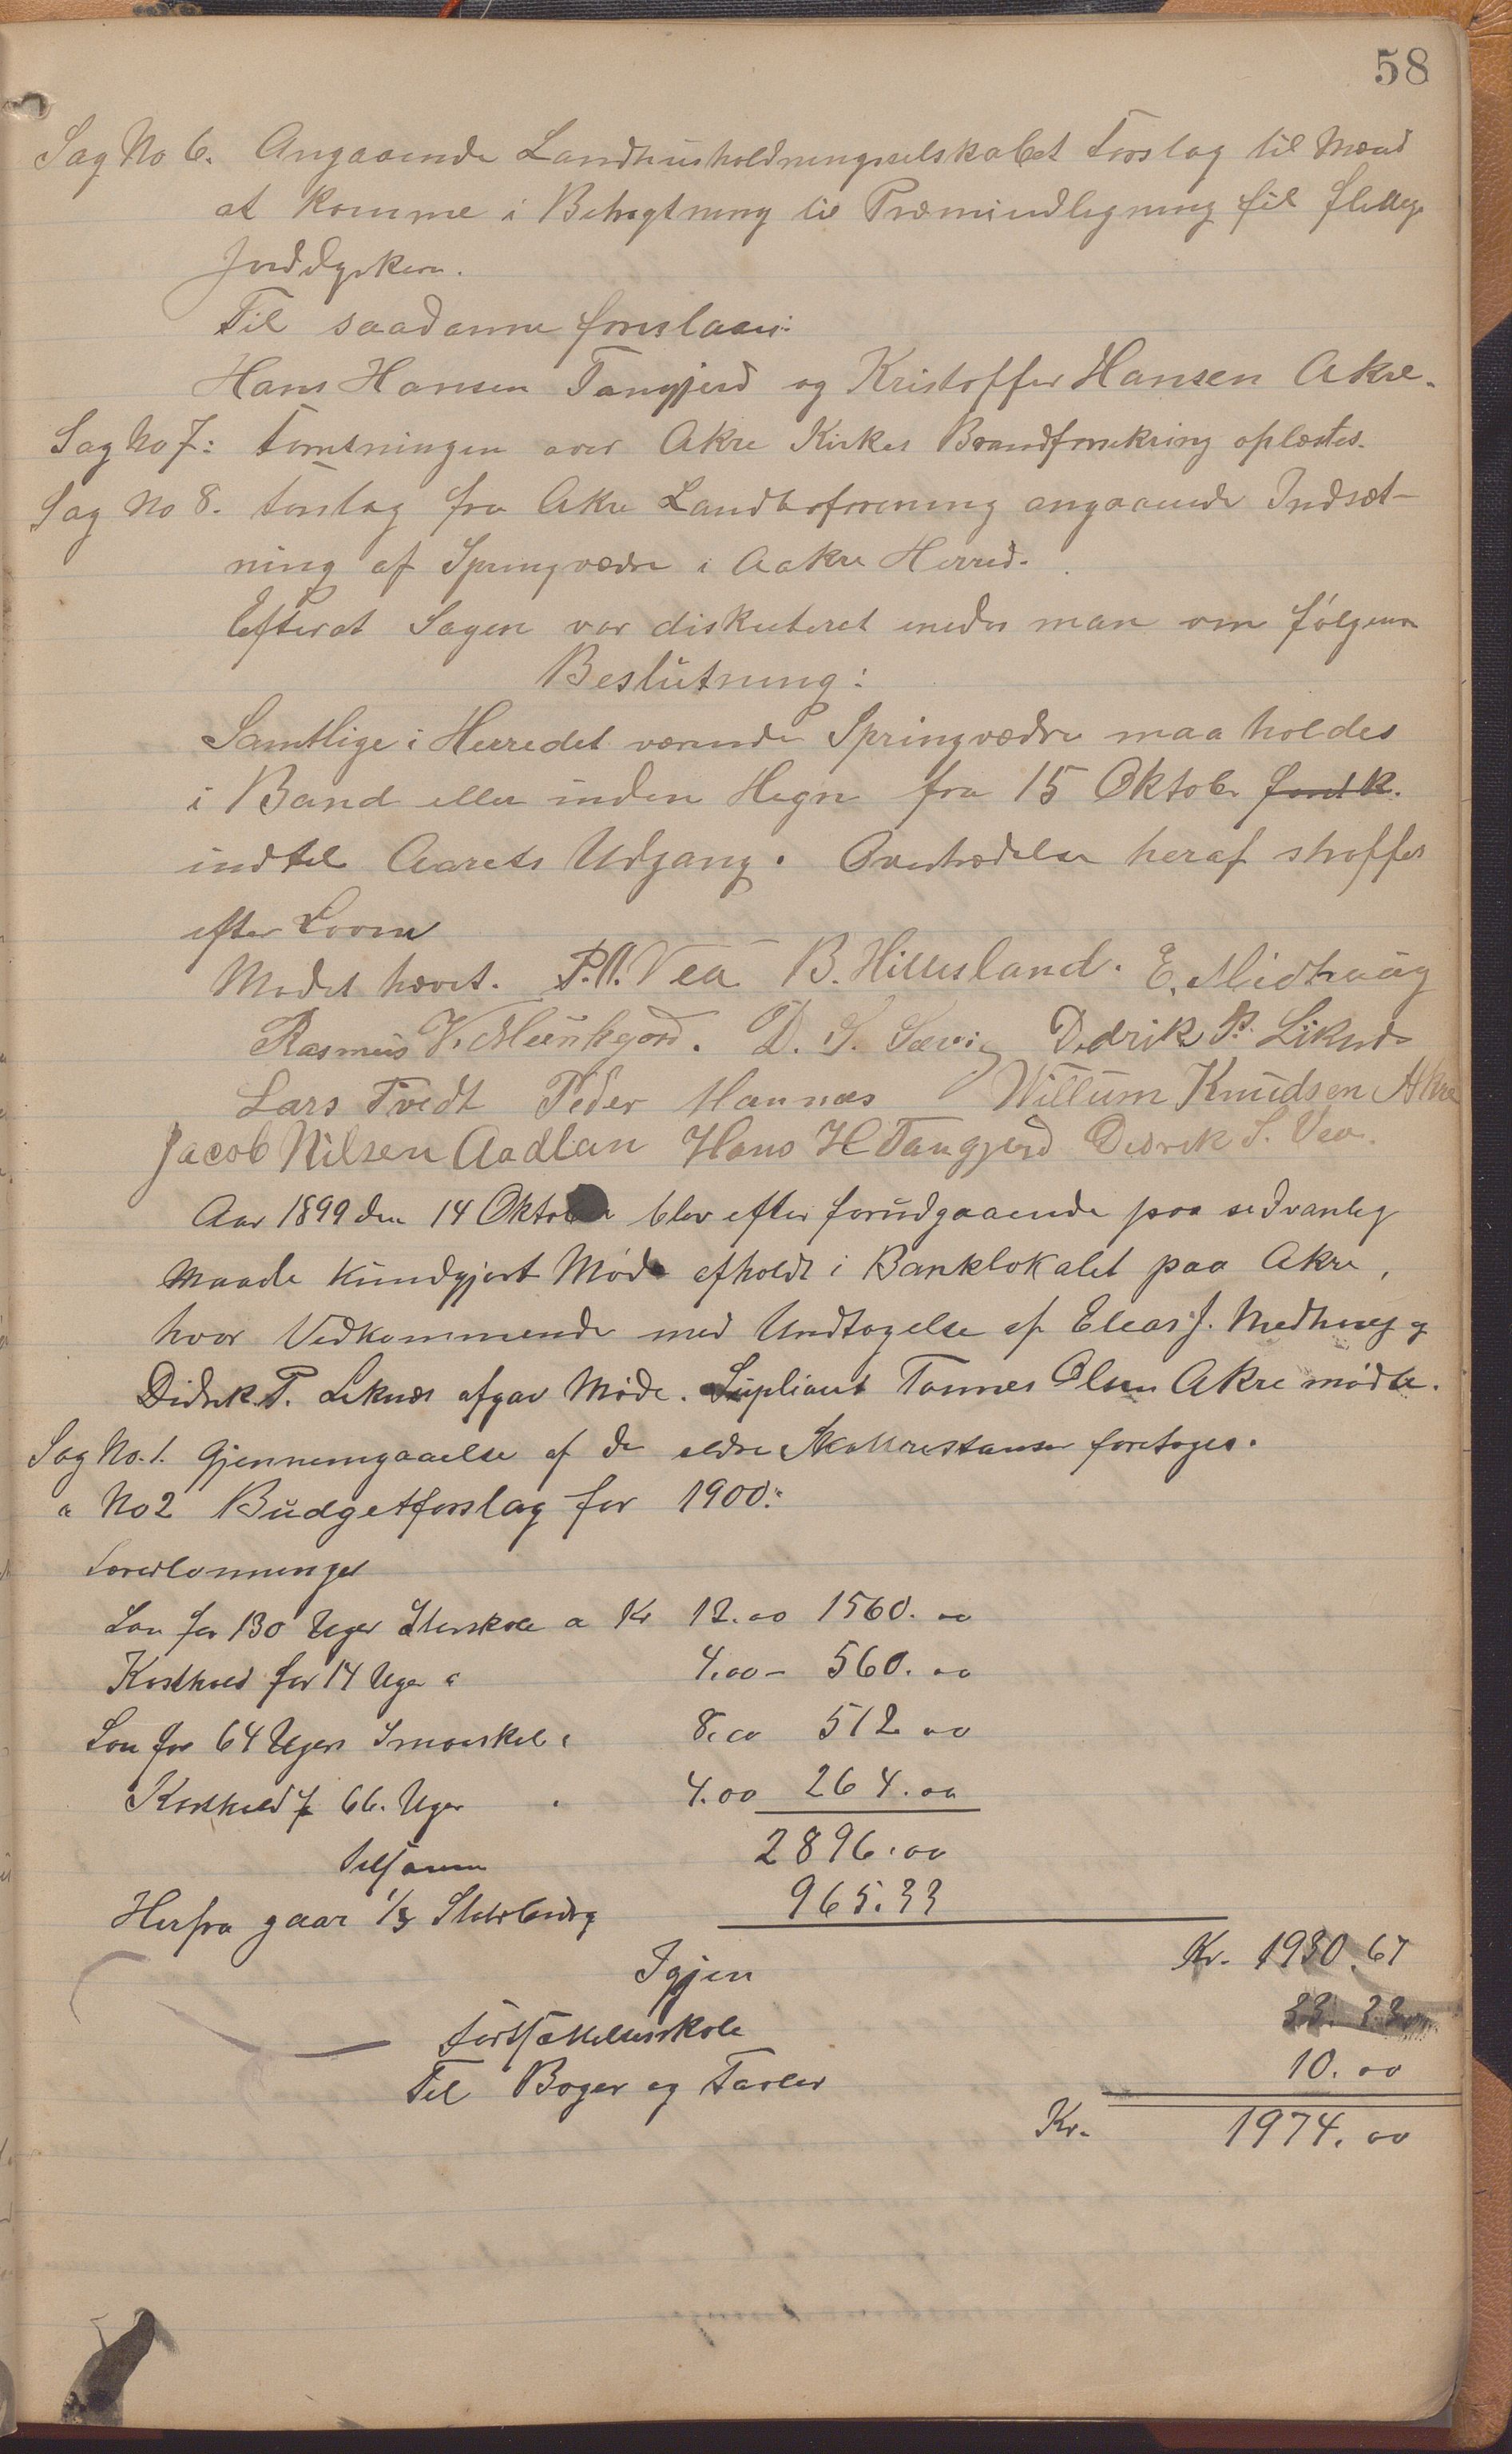 58
Sag No 6. Angaaende Landhusholdningsselskabet Forslag til Mænd
at komme i Betragtning til Præmieudligning til flittige
Jorddyrkere.
Til saadanne foreslaaes:
Hans Hansen Tangjerd og Kristoffer Hansen Akre.
Sag No 7: Forretningen over Akre Kirkes Brandforsikring oplæstes.
Sag No 8. Forslag fra Akre Landboforening angaaende Indsæt-
ning af Springvædre i Aakre Herred.
Efterat Sagen var diskuteret enedes man om følgende
Beslutning:
Samtlige i Herredet værende Springvædre maa holdes
i Baand eller inden Hegn fra 15 Oktobr
indtil Aarets Udgang. Overtrædelse heraf straffes
efter Loven
Mødet hævet. P. N. Vea B. Hillesland. E. Midhaug
Rasmus V. Munkejord. D. S. Sævig Dedrik P. Liknes
Lars Tvedt Peder Mannæs Willum Knudsen Akre
Jacob Nilsen Aadlan Hans H Tangjerd Didrik S. Vea.
Aar 1899 den 14 Oktober blev efter forudgaaende paa sedvanlig
Maade kundgjort Møde afholdt i Banklokalet paa Akre,
hvor Vedkommende med Undtagelse af Eleas J. Medhaug og
Didrik P. Liknes afgav Møde. Supliant Tønnes Olsen Akre mødte.
Sag No. 1. Gjennemgaaelse af de ældre Skatterestanser foretoges.
" No 2 Budgetforslag for 1900:
Lærerlønninger
Løn for 130 Uger Storskole a Kr 12.00 1560.00
Kosthold for 14 Uger a 4.00 - 560.00
Løn for 64 Ugers Smaaskol a 8.00 512 00
Kosthold f 66. Uger " 4.00 264.00
Tilsammen 2896.00
Herfra gaar 1/3 Statsbidrag 965.33
Igjen Kr. 1930.67
Fortsættelsesskole 33.33
Til Bøger og Tavler 10.00
Kr. 1974.00